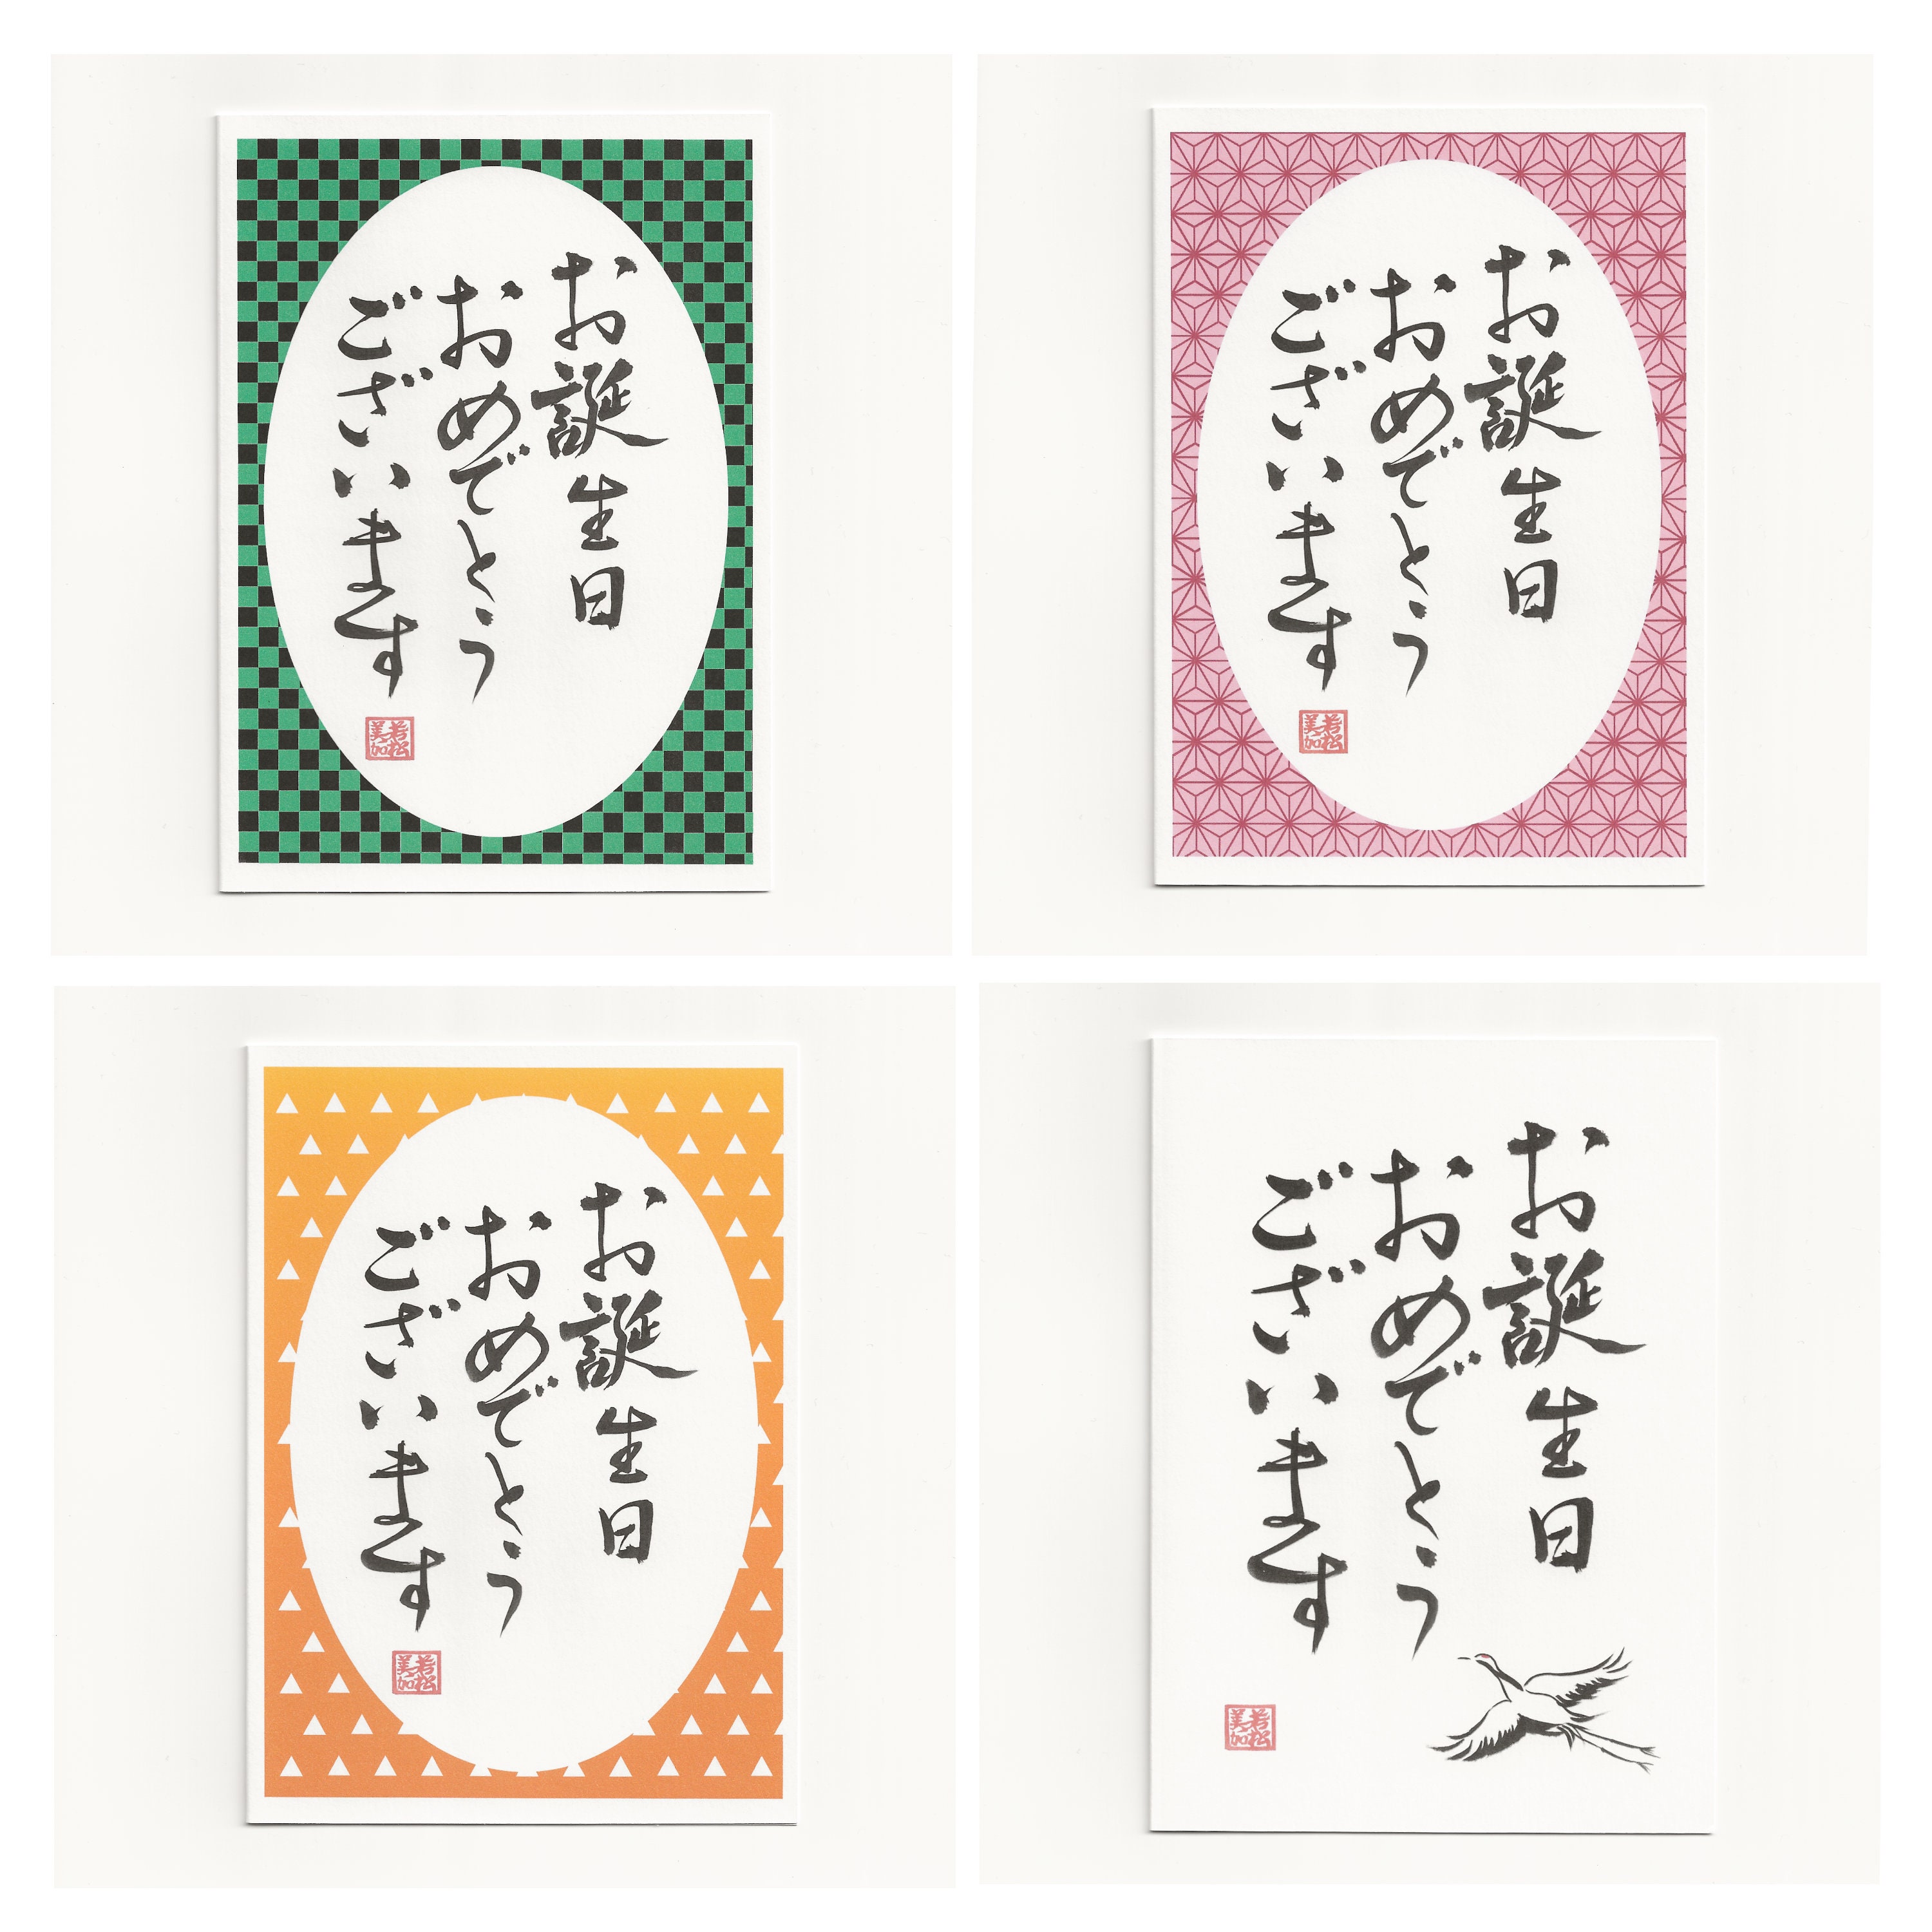 お誕生日
おめでとう
ございます
若松
美加
お誕生日
おめでとう
ございます
若松
美加
お誕生日
おめでとう
ございます
若松
美加
お誕生日
おめでとう
ございます
若松
美加